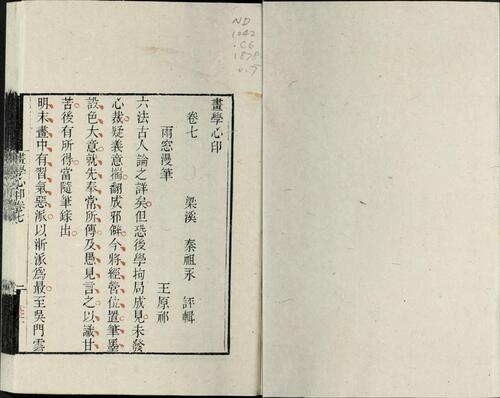 ND
1042
.C6
1878
v.7
畫學心印
卷七
梁溪 秦祖永 評輯
雨窓漫筆 王原祁
六法古人論之詳矣但恐後學拘局成見未發
心裁疑義意揣翻成邪僻今將經營位置筆墨
設色大意就先奉常所傳及愚見言之以識甘
苦後有所得當隨筆錄出
明末畫中有習氣惡派以浙派爲最至吳門雲
畫學心印卷七